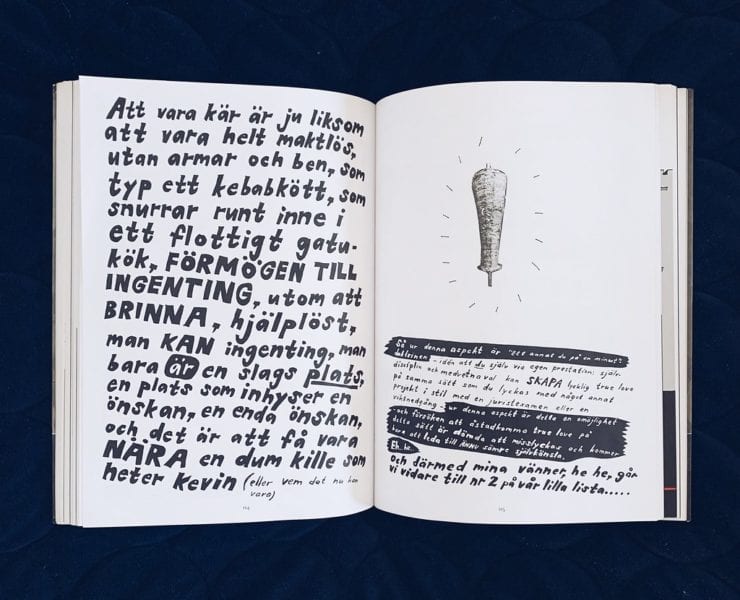 Att vara kär är ju liksom
att vara helt maktlös,
utan armar och ben, som
typ ett kebabkött, som
snurrar runt inne i
ett flottigt gatu-
kök, FÖRMÖGEN TILL
INGENTING, utom att
BRINNA, hjälplöst,
man KAN ingenting, man
bara är en slags plats,
en plats som inhyser en
önskan, en enda önskan,
och det är att få vara
NÄRA en dum kille som
heter Kevin (eller vem det nu kan
vara)
114
Så ur denna aspekt är "ett annat du på en minut"-
doktrinen - idén att du själv via egen prestation: själv-
disciplin och medvetna val kan SKAPA lycklig true love
på samma sätt som du lyckas med något annat
projekt i stil med en juristexamen eller en
viktnedgång - ur denna aspekt är detta en omöjlighet
och försöken att åstadkomma true love på
detta sätt är dömda att misslyckas och kommer
bara att leda till ÄNNU sämre självkänsla.
Eh, he.
Och därmed mina vänner, he he, går
vi vidare till nr 2 på vår lilla lista.....
115